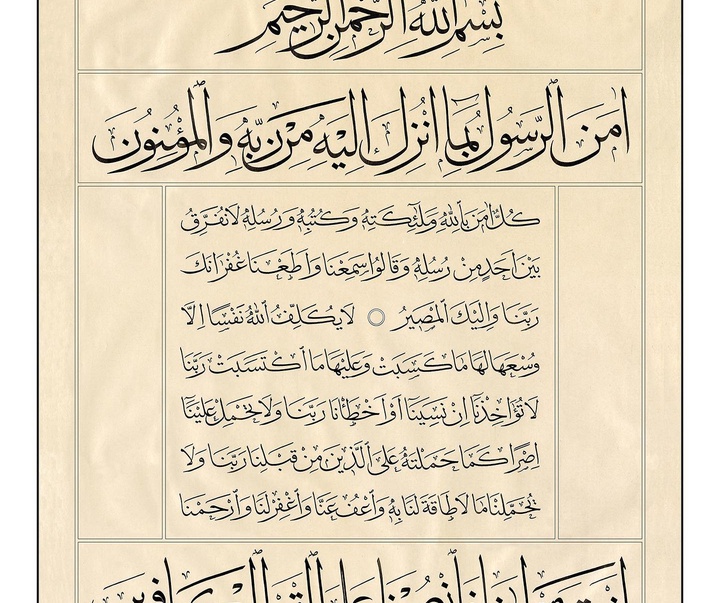 بِسْمِ اللّٰهِ الرَّحْمٰنِ الرَّحِيمِ
اٰمَنَ الرَّسُولُ بِمَٓا اُنْزِلَ اِلَيْهِ مِنْ رَبِّهٖ وَالْمُؤْمِنُونَ
كُلٌّ اٰمَنَ بِاللّٰهِ وَمَلٰٓئِكَتِهٖ وَكُتُبِهٖ وَرُسُلِهٖ لَا نُفَرِّقُ
بَيْنَ اَحَدٍ مِنْ رُسُلِهٖ وَقَالُوا سَمِعْنَا وَاَطَعْنَا غُفْرَانَكَ
رَبَّنَا وَاِلَيْكَ الْمَصِيرُ ۝ لَا يُكَلِّفُ اللّٰهُ نَفْسًا اِلَّا
وُسْعَهَا لَهَا مَا كَسَبَتْ وَعَلَيْهَا مَا اكْتَسَبَتْ رَبَّنَا
لَا تُؤَاخِذْنَٓا اِنْ نَسِينَٓا اَوْ اَخْطَأْنَا رَبَّنَا وَلَا تَحْمِلْ عَلَيْنَٓا
اِصْرًا كَمَا حَمَلْتَهُ عَلَى الَّذِينَ مِنْ قَبْلِنَا رَبَّنَا وَلَا
تُحَمِّلْنَا مَا لَا طَاقَةَ لَنَا بِهٖ وَاعْفُ عَنَّا وَاغْفِرْ لَنَا وَارْحَمْنَا
اَنْتَ مَوْلٰينَا فَانْصُرْنَا عَلَى الْقَوْمِ الْكَافِرِينَ